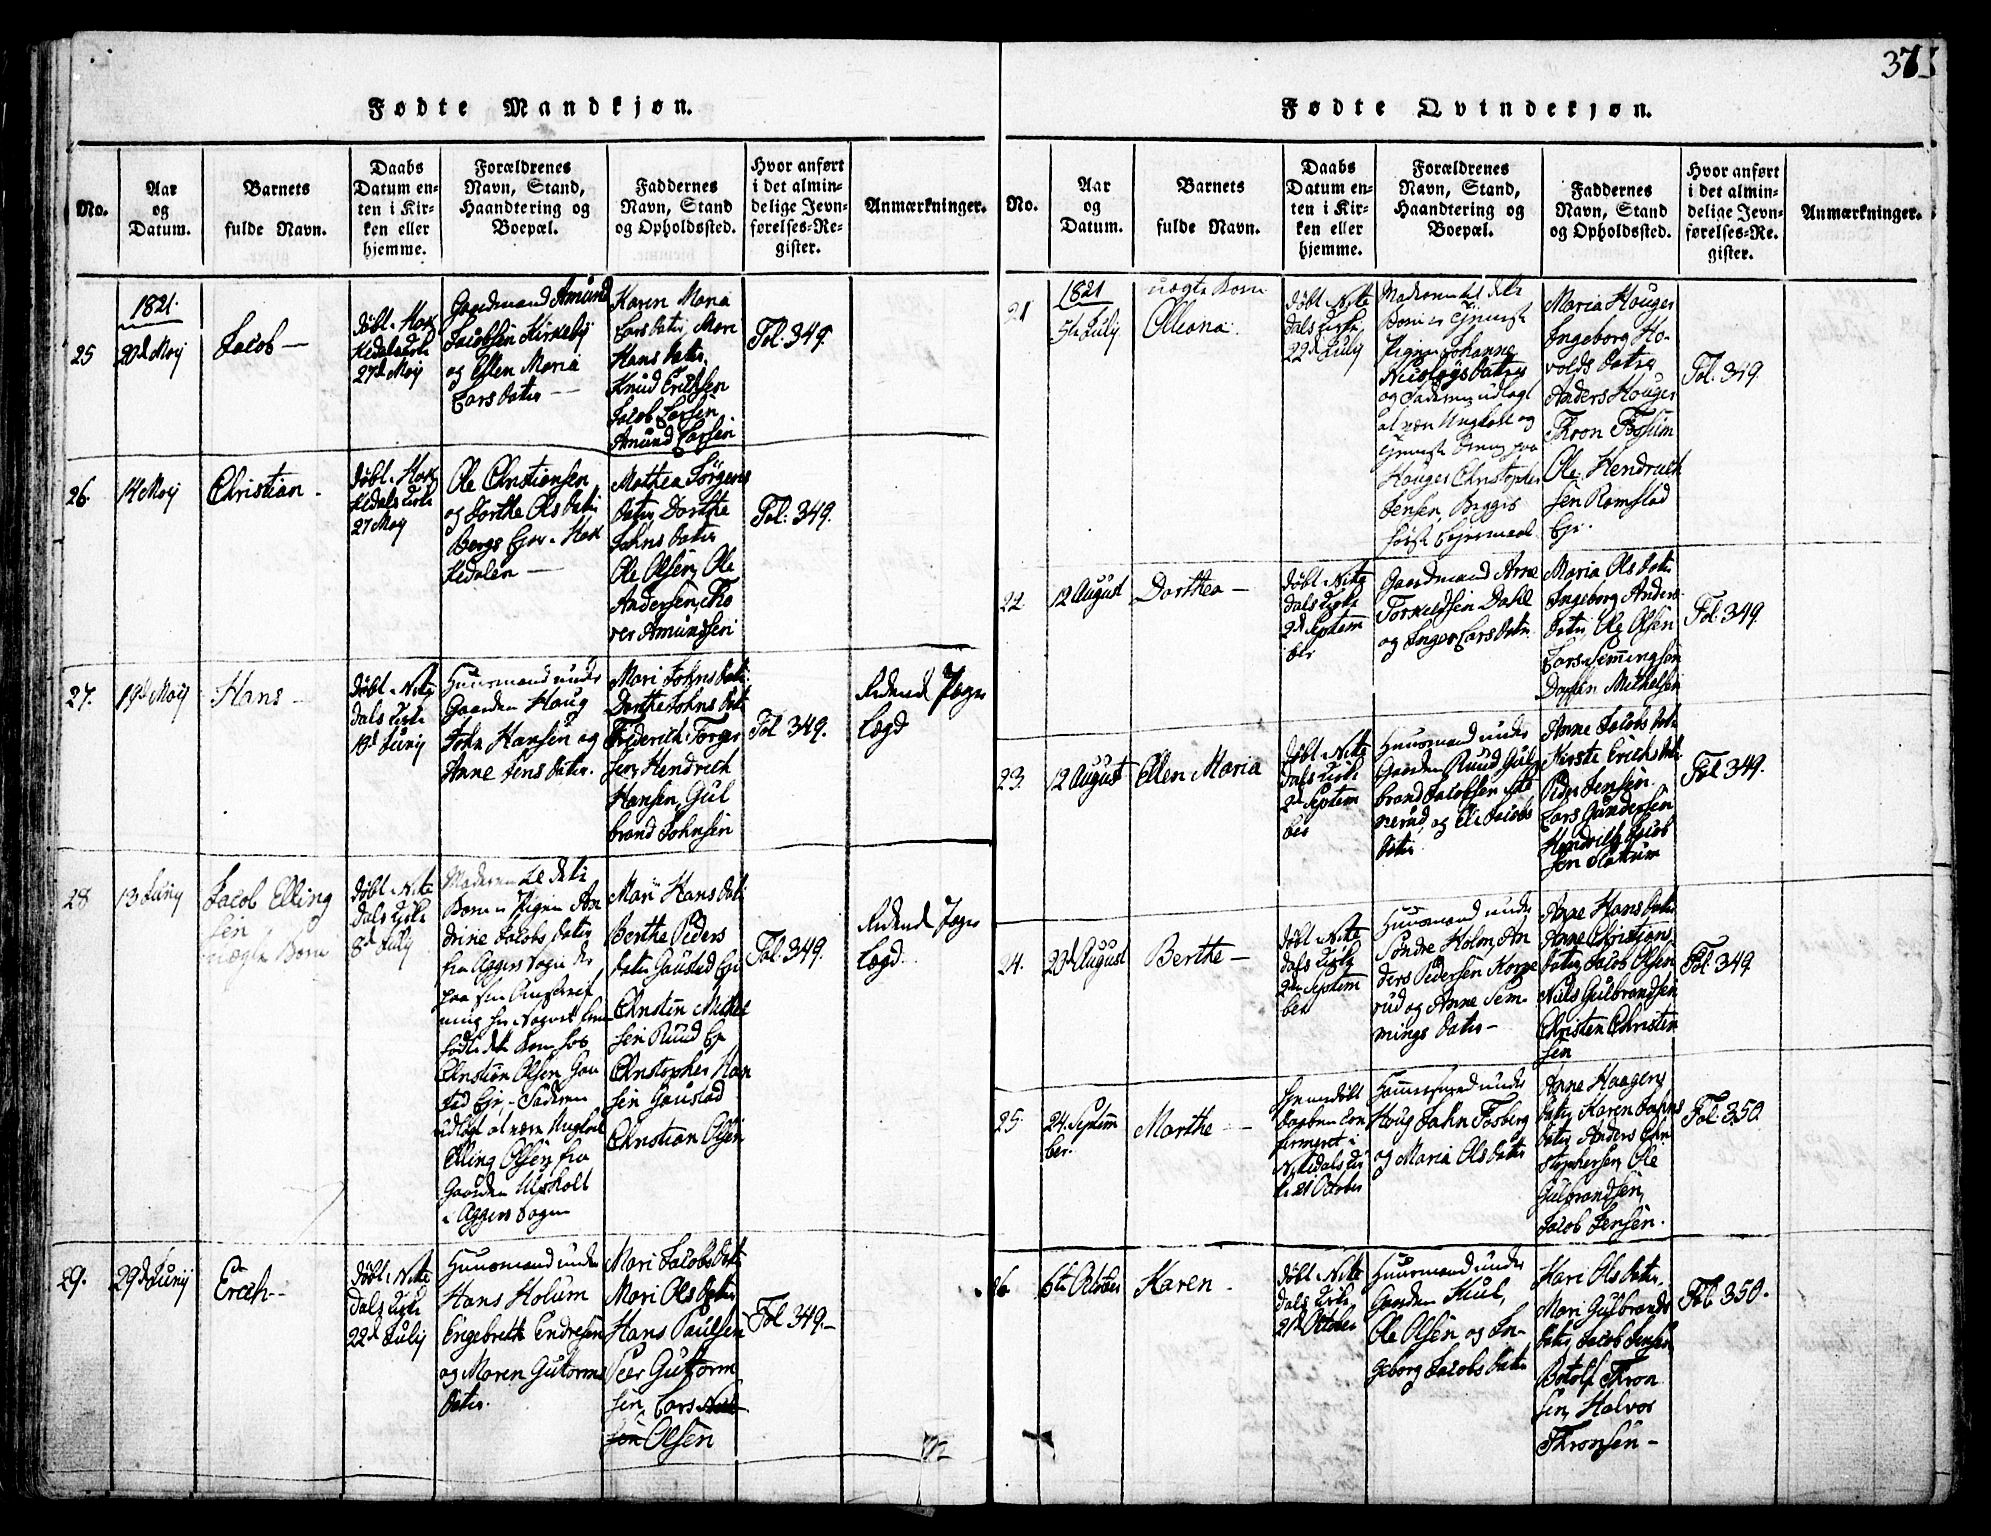 37
Fødte Mandkjøn.
No.
Aar
og
Datum.
Barnets
fulde Navn.
Daabs
Datum en-
ten i Kir-
ken eller
hjemme.
Forældrenes
Navn, Stand,
Haandtering og
Boepæl.
Faddernes
Navn, Stand
og Opholdssted.
Hvor anført
i det almin-
delige Jevn-
førelses-Re-
gister.
Anmærkninger.
25
1821.
20d Maij
Jacob —
døbt i Hak
kedals Kirke
27d Maij
Gaardmand Amund
Jacobsen Kirkeby
og Ellen Maria
Lars datter —
Karen Maria
Lars datter, Mari
Hans datter,
Knud Erichsen
Jacob Larsen
Amund Larsen
Fol. 349.
26.
14 Maij
Christian -
døbt i Hak
kedals Kirke
27 Maij
Ole Christiansen
og Dorthe Ols datter
Bergs Eier i Hak
kedalen —
Mathea Jørgens
datter Dorthe
Johns datter
Ole Olsen, Ole
Andersen, Tho
rer Amundsen
Fol: 349.
27.
19d Maij
Hans —
døbt i Nite
dals Kirke
19d Junij
Huusmand under
Gaarden Haug
John Hansen og
Anne Jens datter.
Mari Johns datter
Dorthe Johns datter
Frederich Torger
sen, Hendrich
Hansen, Gul
brand Johnsen
Fol 349.
Lægd
28
13 Junij
Jacob Elling
sen
uægte Barn
døbt i Nite
dals Kirke
8d July
Moderen til dette
Barn er Pigen An
drine Jacobs datter
fra Aggers Sogn der
paa sin
fødte dette Barn hos
Christian Olsen Gau
stad Eier, - Faderen
udlagt at være Ungkarl
Elling Olsen fra
Gaarden Ulsholt
i Aggers Sogn
Mari Hans datter
Berthe Peders
datter Gaustad Eier
Christen Mikkel
sen Ruud Eier
Christopher Han
sen Gaustad
Christian Olsen
Fol. 349.
Lægd.
29.
29d Junij
Erich —
døbt i Nite
dals Kirke
22d July
Huusmand under
Hans Holum
Engebreth Endresen
og Maren Gutorms
datter.
Mari Jacobs datter
Mari Ols datter
Hans Paulsen
Peer Gutorm
sen, Lars
Olsen
Fol 349.—
Fødte Qvindekjøn.
No.
Aar
og
Datum.
Barnets
fulde Navn.
Daabs
Datum en-
ten i Kir-
ken eller
hjemme.
Forældrenes
Navn, Stand,
Haandtering og
Boepæl.
Faddernes
Navn, Stand
og Opholdssted.
Hvor anført
i det almin-
delige Jevn-
førelses-Re-
gister.
Anmærkninger.
21
1821
5te July
uægte Barn
Olleana.
døbt i Nite
dals Kirke
22d July
Moderen til dette
Barn er
Pigen Johanne
Nicolays datter
og Faderen udlagt
at være Ungkarl og
Houger Christopher
Jensen
første Leiermaal
Maria Houger
Ingeborg Ha-
volds datter
Anders Houger
Thron Fossum
Ole Hendrich
sen Ramstad
Eier.
Fol. 349.
22.
12 August
Dorthea —
døbt i Nite
dals Kirke
2d Septem
ber
Gaardmand Arne
Torkeldsen Dahl
og Inger Lars datter
Maria Ols datter
Ingeborg Anders
datter, Ole Olsen
Lars Semmingsen
Michelsen
Fol. 349.
23.
12 August
Ellen Maria
døbt i Nite
dals Kirke
2d Septem
ber
Huusmand under
Gaarden Ruud Gul
brand Jacobsen
nerud, og Eli Jacobs
datter
Anne Jacobs datter
Kirsti Erichs datter
Peder Jensen
Lars Gundersen
Hendrich Jacob
sen Slattum
Fol 349.
24.
20d August
Berthe —
døbt i Nite
dals Kirke
2den Septem
ber
Huusmand under
Søndre Holm, An
ders Pedersen Korne
rud og Anne Sem-
mings datter —
Anne Hans datter
Anne Christians
datter, Jacob Olsen
Niels Gulbrandsen
Christen Christen
sen
Fol 349.
25.
24. Septem
ber.
Marthe —
Hiemmedøbt
Daaben con
firmeret i
Nitedals Kir
ke 21 October
Huusmand under
Houg John Fosberg
og Maria Ols datter
Anne Haagens
datter, Karen Johns
datter, Anders Chri
stophersen, Ole
Gulbrandsen,
Jacob Jensen.
Fol. 350.
26
6te October
Karen -
døbt i Nite
dals Kirke
21d October
Huusmand under
Gaarden Kiul,
Ole Olsen og In-
geborg Jacobs datter
Kari Ols datter,
Mari Gulbrands
datter, Jacob Jensen
Botolf Thron
sen, Halvor
Thronsen —
Fol. 350.